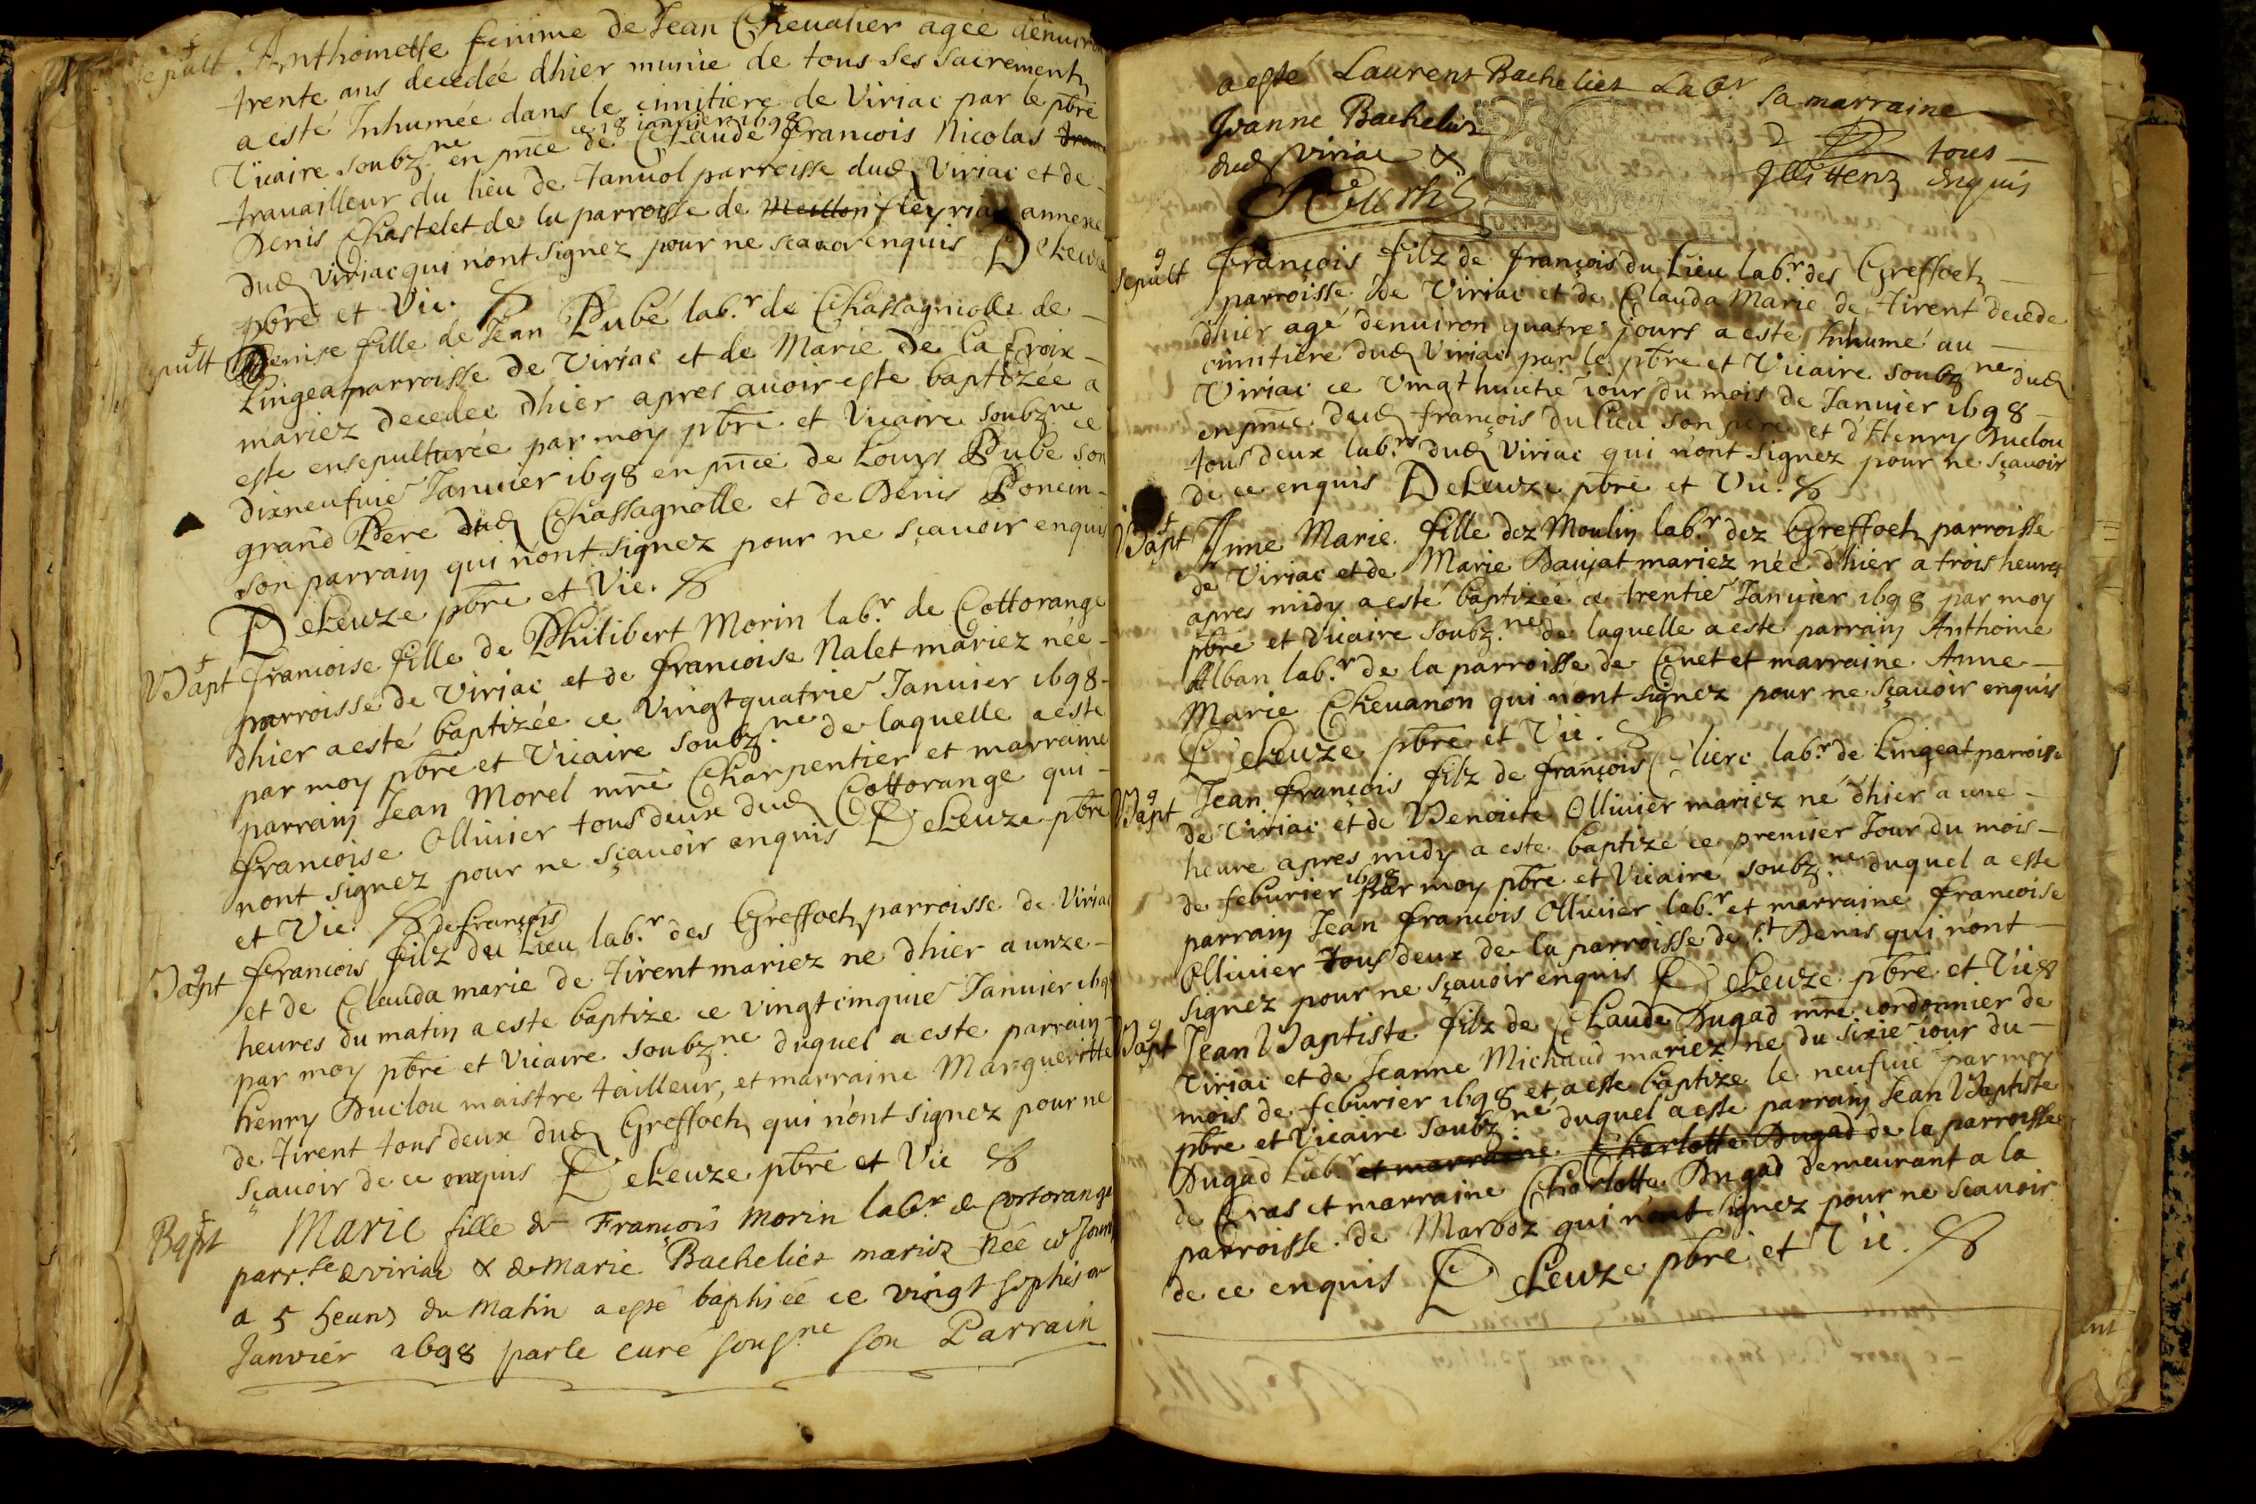 sepult Anthoinette femme de Jean Chevalier agée denuiron
trente ans decedée dhier munie de tous ses sacrements
a esté Inhumée dans le cimitiere de Viriac par le pbre
ce 18 ianuier 1698
Vicaire soubz.ne en pnce de Claude francois Nicolas
trauailleur du lieu de tanuol parroisse dud Viriac et de
Denis Chastelet de la parroisse de Meillon fleyriac annexe
dud Viriac qui n'ont signez pour ne scauoir enquis DeLeuze
pbre et Vic.
sepult Denise fille de Jean Pubé lab.r de Chassagnolle de
Lingeat parroisse de Viriac et de Marie de la Croix
mariez decedee dhier apres auoir este baptizée a
este ensepulturée par moy pbre et Vicaire soubz.ne ce
dixneufuie Januier 1698 en pnce de Louys Pube son
grand Pere dud Chassagnolle et de Denis Poncin
son parrain qui n'ont signez pour ne sçauoir enquis
DeLeuze pbre et Vic.
Bapt francoise fille de Philibert Morin lab.r de Cottorange
parroisse de Viriac et de francoise Nalet mariez née
dhier a esté baptizée ce Vingtquatrie Januier 1698
par moy pbre et Vicaire soubz.ne de laquelle a este
parrain Jean Morel mre Charpentier et marraine
francoise Olliuier tous deux dud Cottorange qui
nont signez pour ne sçauoir enquis DeLeuze pbre
et Vic.
de françois
Bapt francois filz du Lieu lab.r des Greffoetz parroisse de Viriac
et de Clauda marie de tirent mariez ne dhier a unze
heures du matin a este baptize ce vingtcinquie Januier 169
par moy pbre et Vicaire soubz.ne duquel a este parrain
henry Duclou maistre tailleur, et marraine Margueritte
de tirent tous deux dud Greffoetz qui n'ont signez pour ne
sçauoir de ce enquis DeLeuze pbre et Vic
Bapt Marie fille de François Morin labr de Cottorange
parr.se de viriac & de Marie Bachelier mariez née ce Jour
a 5 heures du Matin a esté baptisée ce vingt septiesme
Janvier 1698 par le curé sousne son Parrain
a esté Laurent Bachelier Labr sa marraine
Jeanne Bachelier
dud viriac & tous
Illittenz enquis
sepult François filz de françois du Lieu lab.r des Greffoetz
parroisse de Viriac et de Clauda Marie de tirent decede
dhier agé denuiron quatre jours a este Inhumé au
cimitiere dud Viriac par le pbre et Vicaire soubz.ne dud
Viriac ce Vingthuictie iour du mois de Januier 1698
en pnce dud françois du Lieu son pere et d'Henry Duclou
tous deux lab.rs dud Viriac qui n'ont signez pour ne sçauoir
de ce enquis DeLeuze pbre et Vic.
Bapt Anne Marie fille dez Moulin lab.r dez Greffoetz parroisse
de Viriac et de Marie Daujat mariez née dhier a trois heures
apres midy a esté baptizée ce trentie Januier 1698 par moy
pbre et Vicaire soubz.ne de laquelle a esté parrain Anthoine
Alban lab.r de la parroisse de Cuet et marraine Anne
Marie Cheuanon qui n'ont signez pour ne sçauoir enquis
DeLeuze pbre et Vic.
Bapt Jean francois filz de françois Clierc lab.r de Lingeat parroisse
de Viriac et de Benoite Olliuier mariez né dhier a une
heure apres midy a este baptizé ce premier Jour du mois
1698
de feburier par moy pbre et Vicaire soubz.ne duquel a este
parrain Jean francois Olliuier lab.r et marraine francoise
Olliuier tous deux de la parroisse de st Denis qui n'ont
signez pour ne sçauoir enquis DeLeuze pbre et Vic
Bapt Jean Baptiste filz de Claude Dugad mre cordonnier de
Viriac et de Jeanne Michaud mariez ne du sixie iour du
mois de feburier 1698 et a este baptize le neufuie par moy
pbre et Vicaire soubz.ne duquel a este parrain Jean Baptiste
Dugad Lab.r et marraine Charlotte Dugad de la parroisse
de Cras et marraine Charlotte Dugad demeurant a la
parroisse de Marboz qui n'ont signez pour ne scauoir
de ce enquis DeLeuze pbre et Vic.